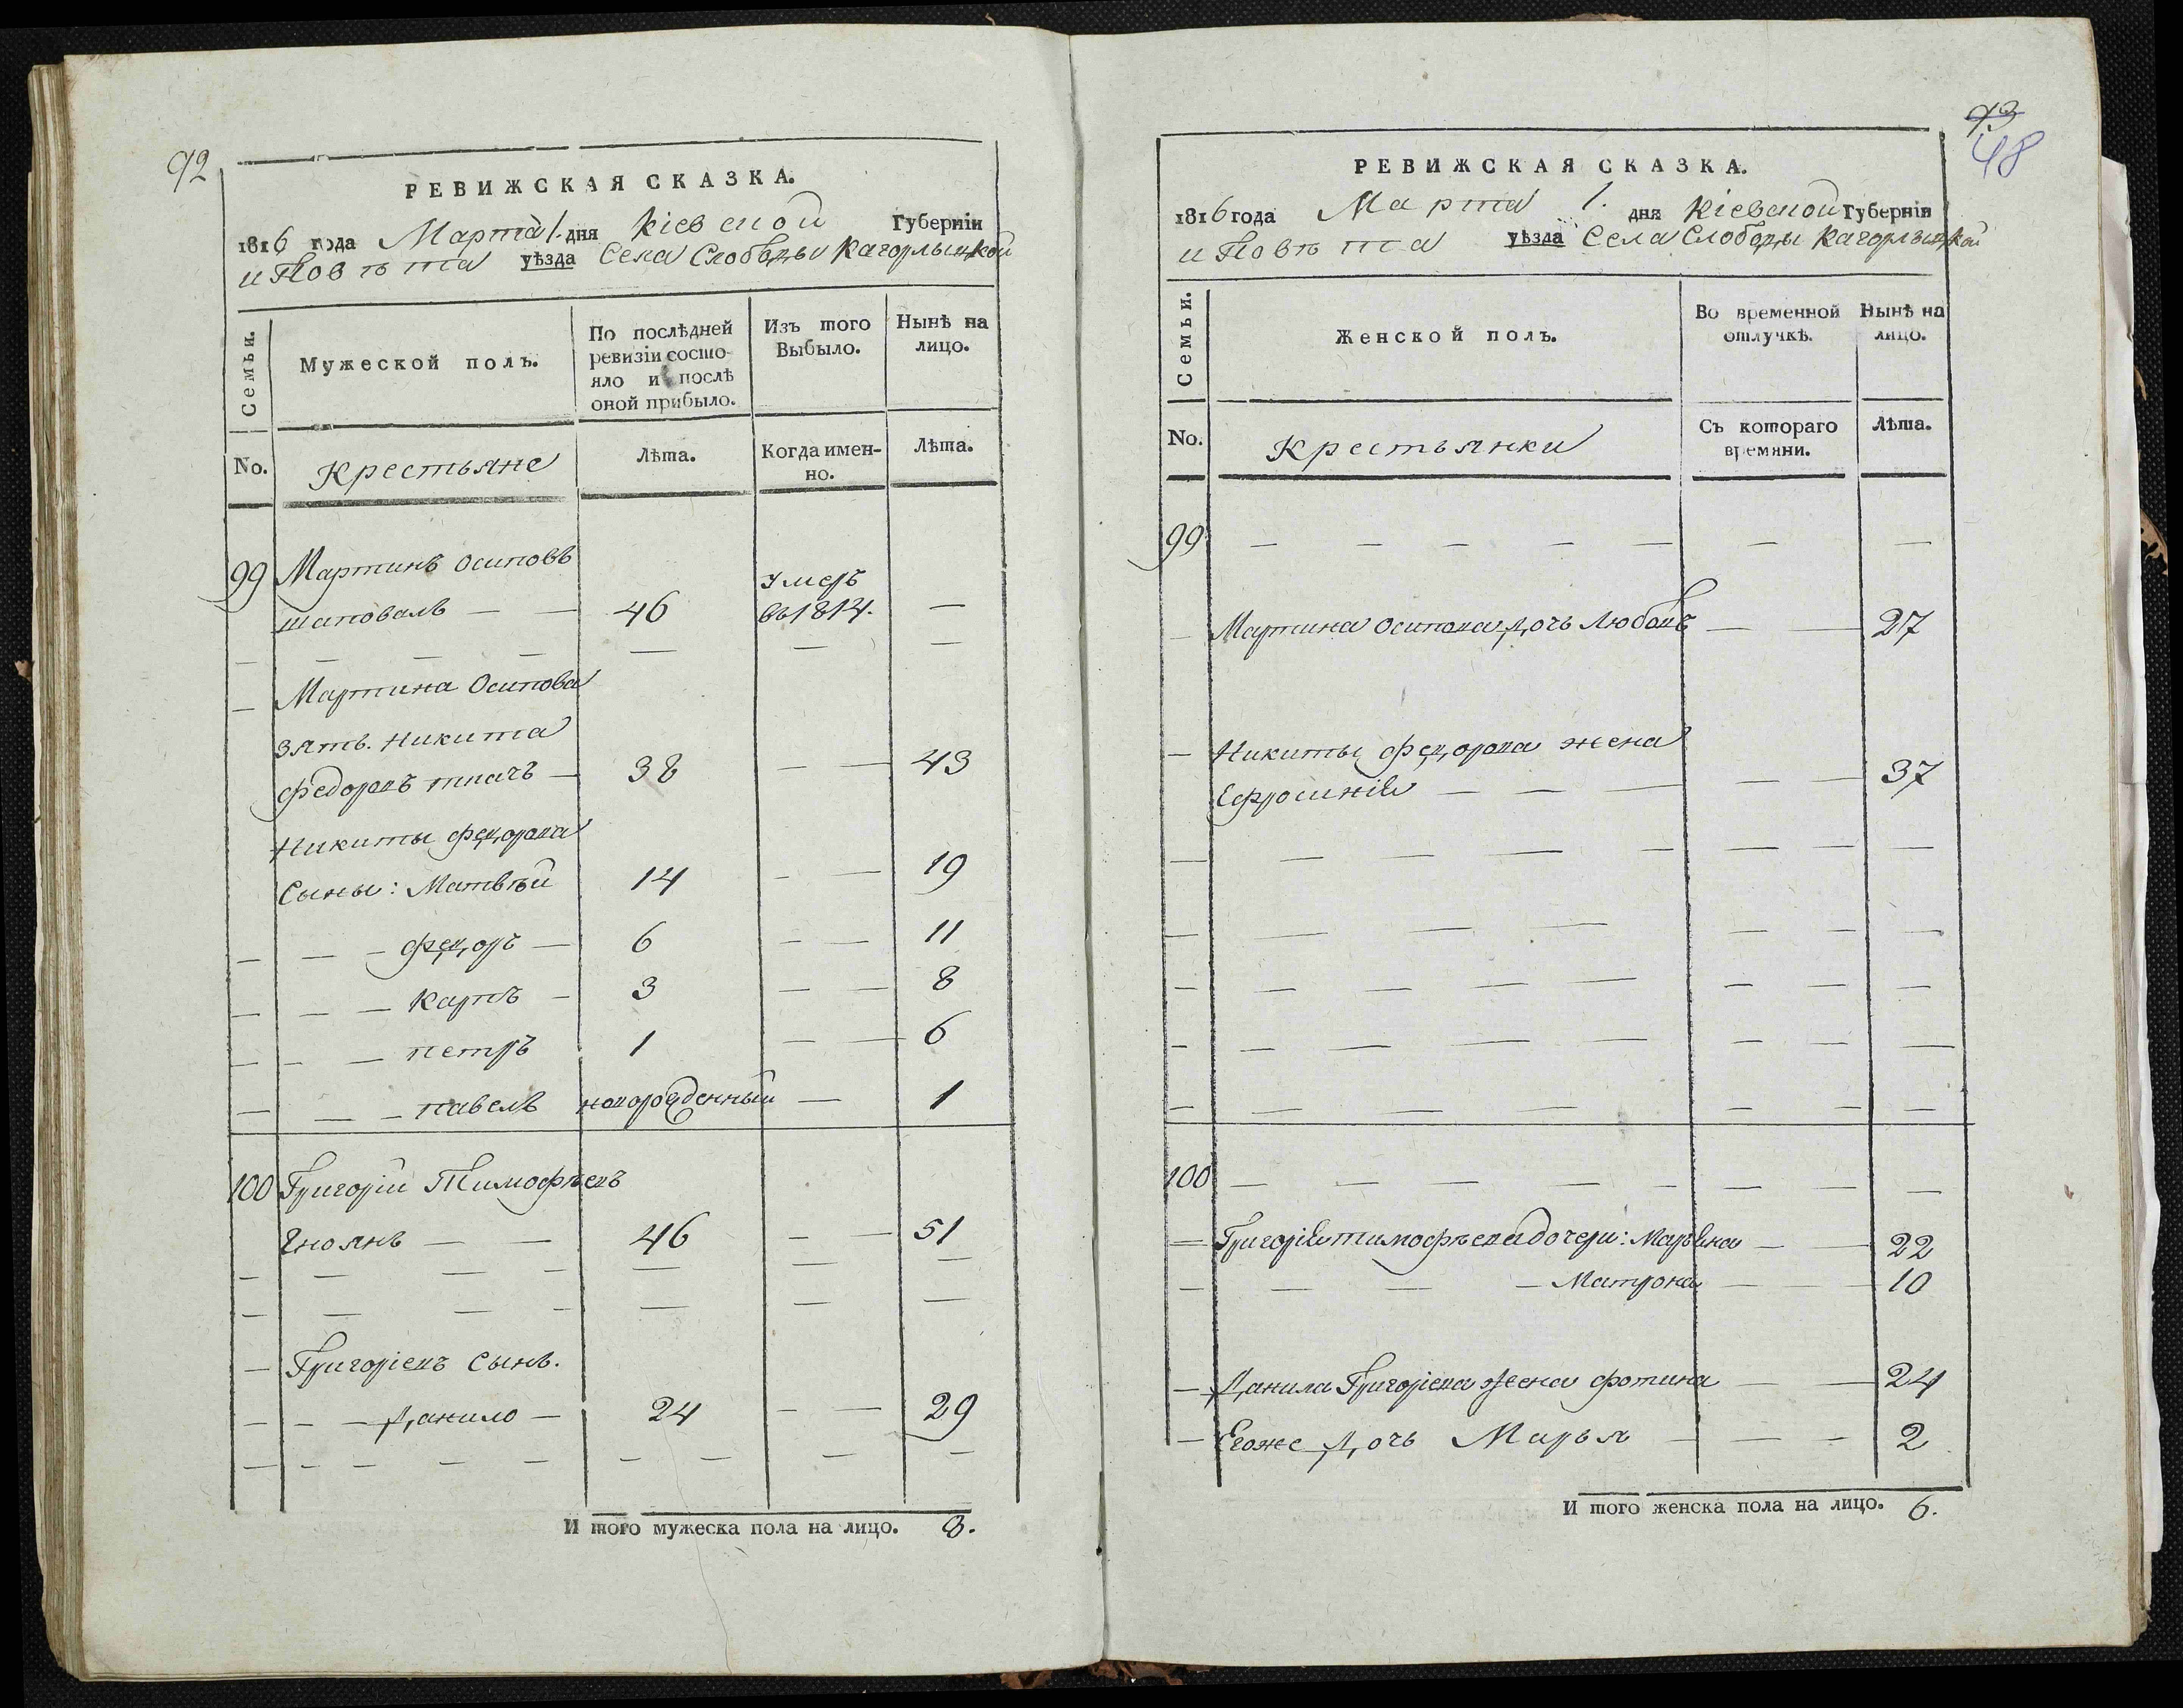 92
РЕВИЖСКАЯ СКАЗКА.
1816 года Марта 1. дня Кіевской Губерніи
и Повѣта уѣзда Села Слободы Кагорлыцкой
Семьи.
Мужеской полъ.
По послѣдней
ревизіи состо-
яло и послѣ
оной прибыло.
Изъ того
Выбыло.
Нынѣ на
лицо.
No.
Крестьяне
Лѣта.
Когда имен-
но.
Лѣта.
99 Мартинъ Осиповъ
шаповалъ — — 46 умеръ въ 1814. —
— — — — — — —
— Мартина Осипова
зять. Никита
Федоровъ ткачъ — 38 — — 43
Никиты Федорова
Сыны: Матвѣй 14 — — 19
— — — Федоръ — 6 — — 11
— — — Карпъ — 3 — — 8
— — — петръ 1 — — 6
— — — павелъ новорожденный — 1
100 Григорій Тимофѣевъ
Гноянъ — — 46 — — 51
— — — — — — —
— — — — — — —
— Григоріевъ Сынъ.
— — — Данило — 24 — — 29
— — — — — — — — —
И того мужеска пола на лицо. 8.
93
48
РЕВИЖСКАЯ СКАЗКА.
1816 года Марта 1. дня Кіевской Губерніи
и Повѣта уѣзда Села Слободы Кагорлыцкой
Семьи.
Женской полъ.
Во временной
отлучкѣ.
Нынѣ на
лицо.
No.
Крестьянки
Съ котораго
времяни.
Лѣта.
99 — — — — — — —
— Мартина Осипова дочь Любовъ — — 27
— Никиты Федорова жена
Ефросинія — — — — — 37
— — — — — — — —
— — — — — — — —
— — — — — — — — —
— — — — — — — —
— — — — — — — —
100 — — — — — — — —
— Григорія тимофѣева дочери: Марьяна — — 22
— — — — Матрона — — — 10
— Данила Григоріева жена фотина — — 24
— Егоже дочь Марья — — — 2
И того женска пола на лицо. 6.